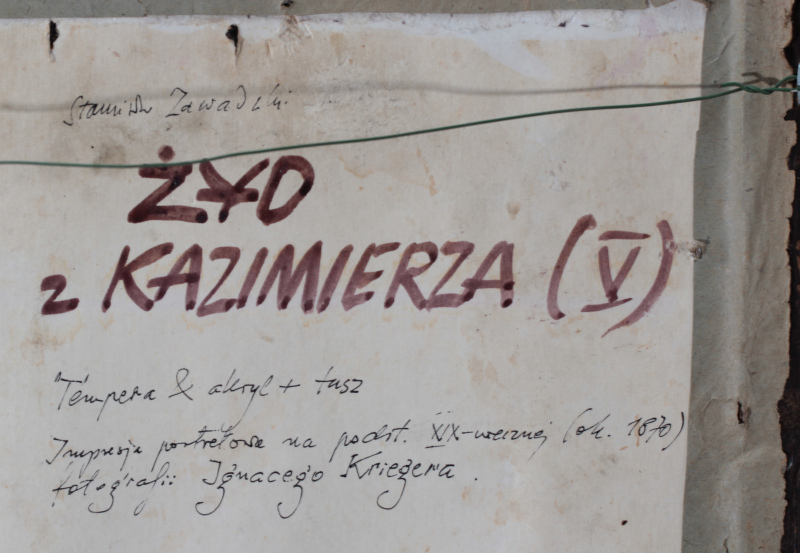 Stanisław Zawadzki
ŻYD
z KAZIMIERZA (V)
Tempera & akryl + tusz
Impresja portretowa na podst. XIX-wecznej (ok. 1870)
fotografii Ignacego Kriegera.